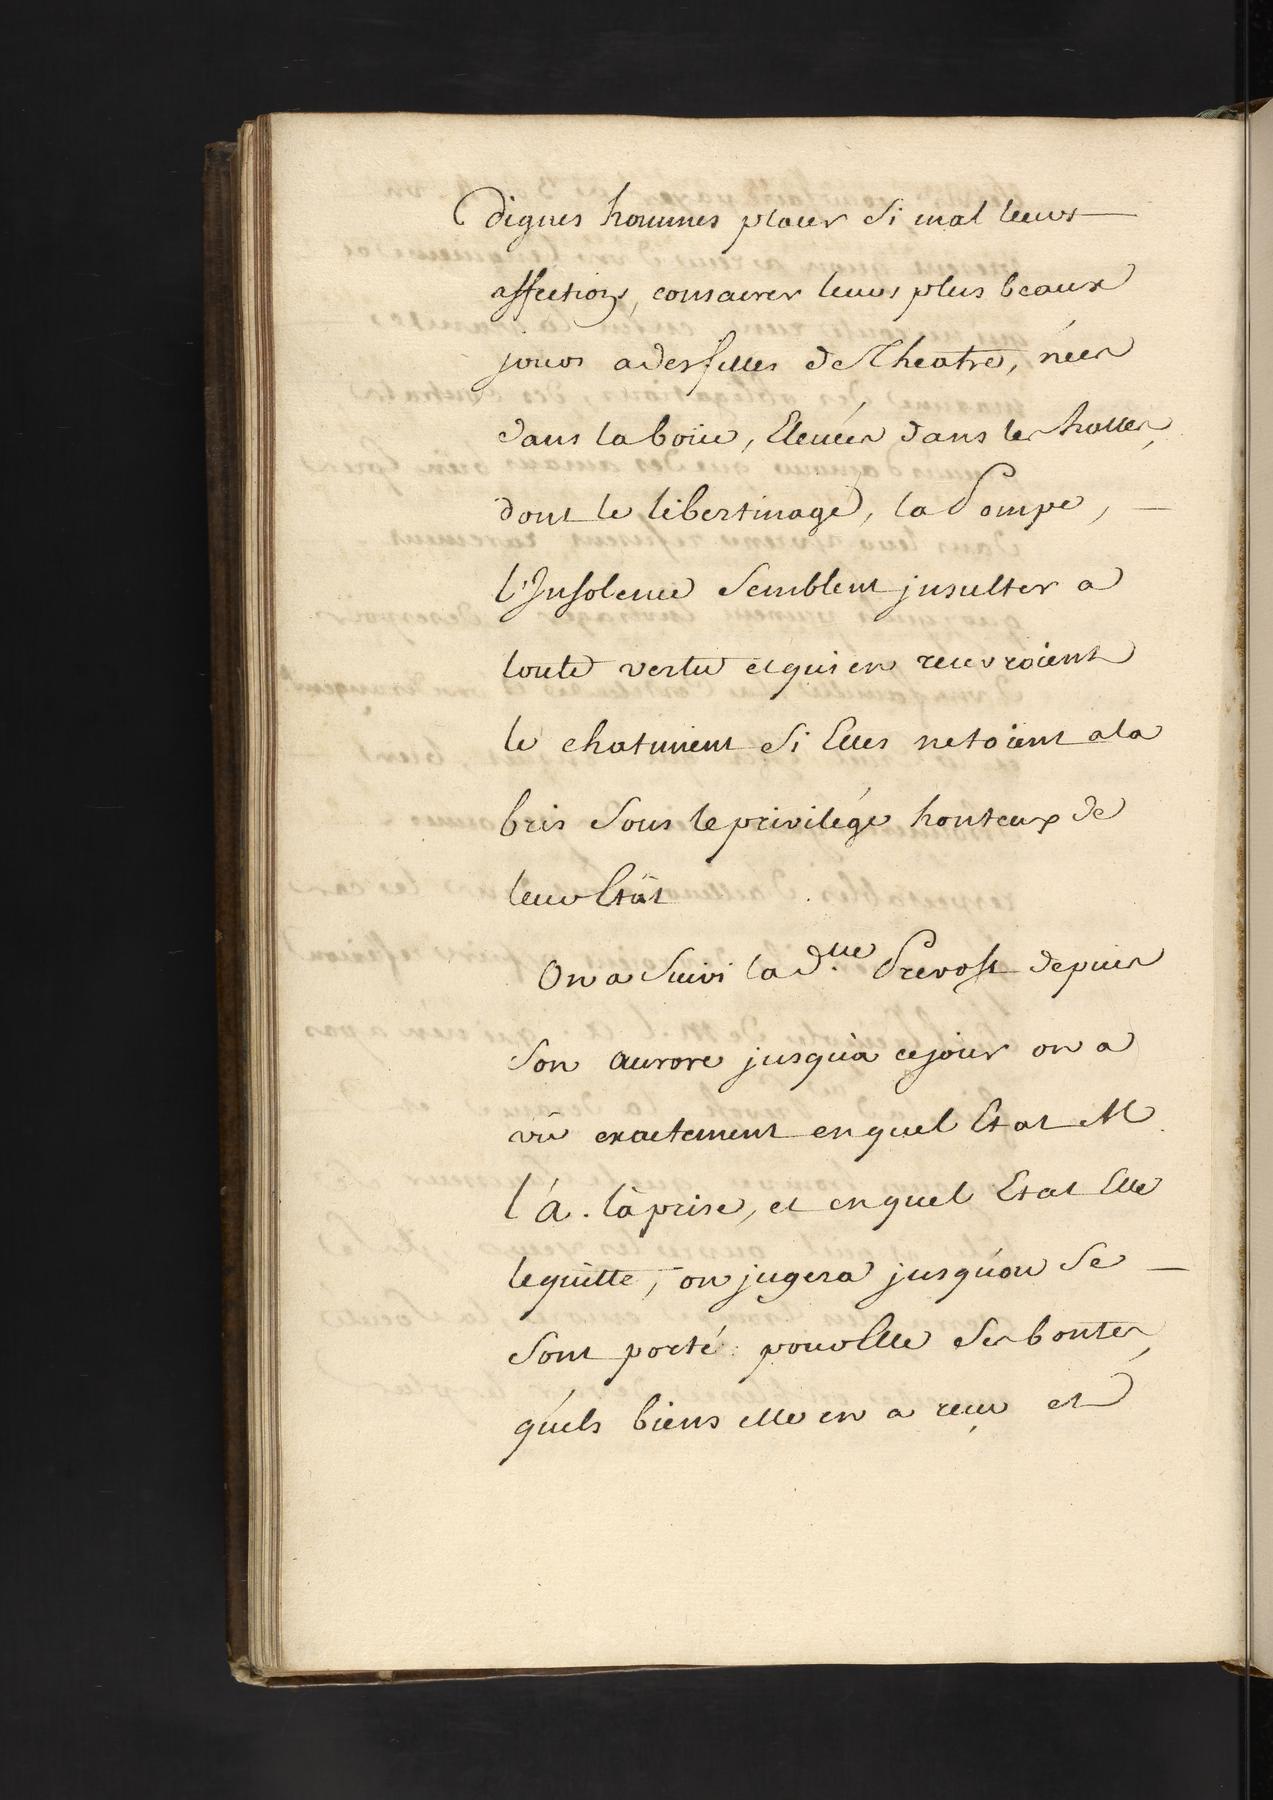 dignes hommes placer si mal leurs —
affections, consacrer leurs plus beaux
jours a des filles de Theatre, nées
dans la boüe, Elevées dans les halles,
dont le libertinage, la Pompe, —
l'Insolence semblent jnsulter a
toute vertu et qui en recevroient
le chatiment si Elles netoient ala
bris sous le privilége honteux de
leur Etât
On a suivi la d.lle Prevost depuis
son aurore jusqu'a cejour on a
vû exactement en quel Etat M
l'a. la prise, et en quel Etat Elle
le quitte, on jugera jusqu'ou se —
sont porté pour Elle ses bontés,
quels biens elle en a reçu et